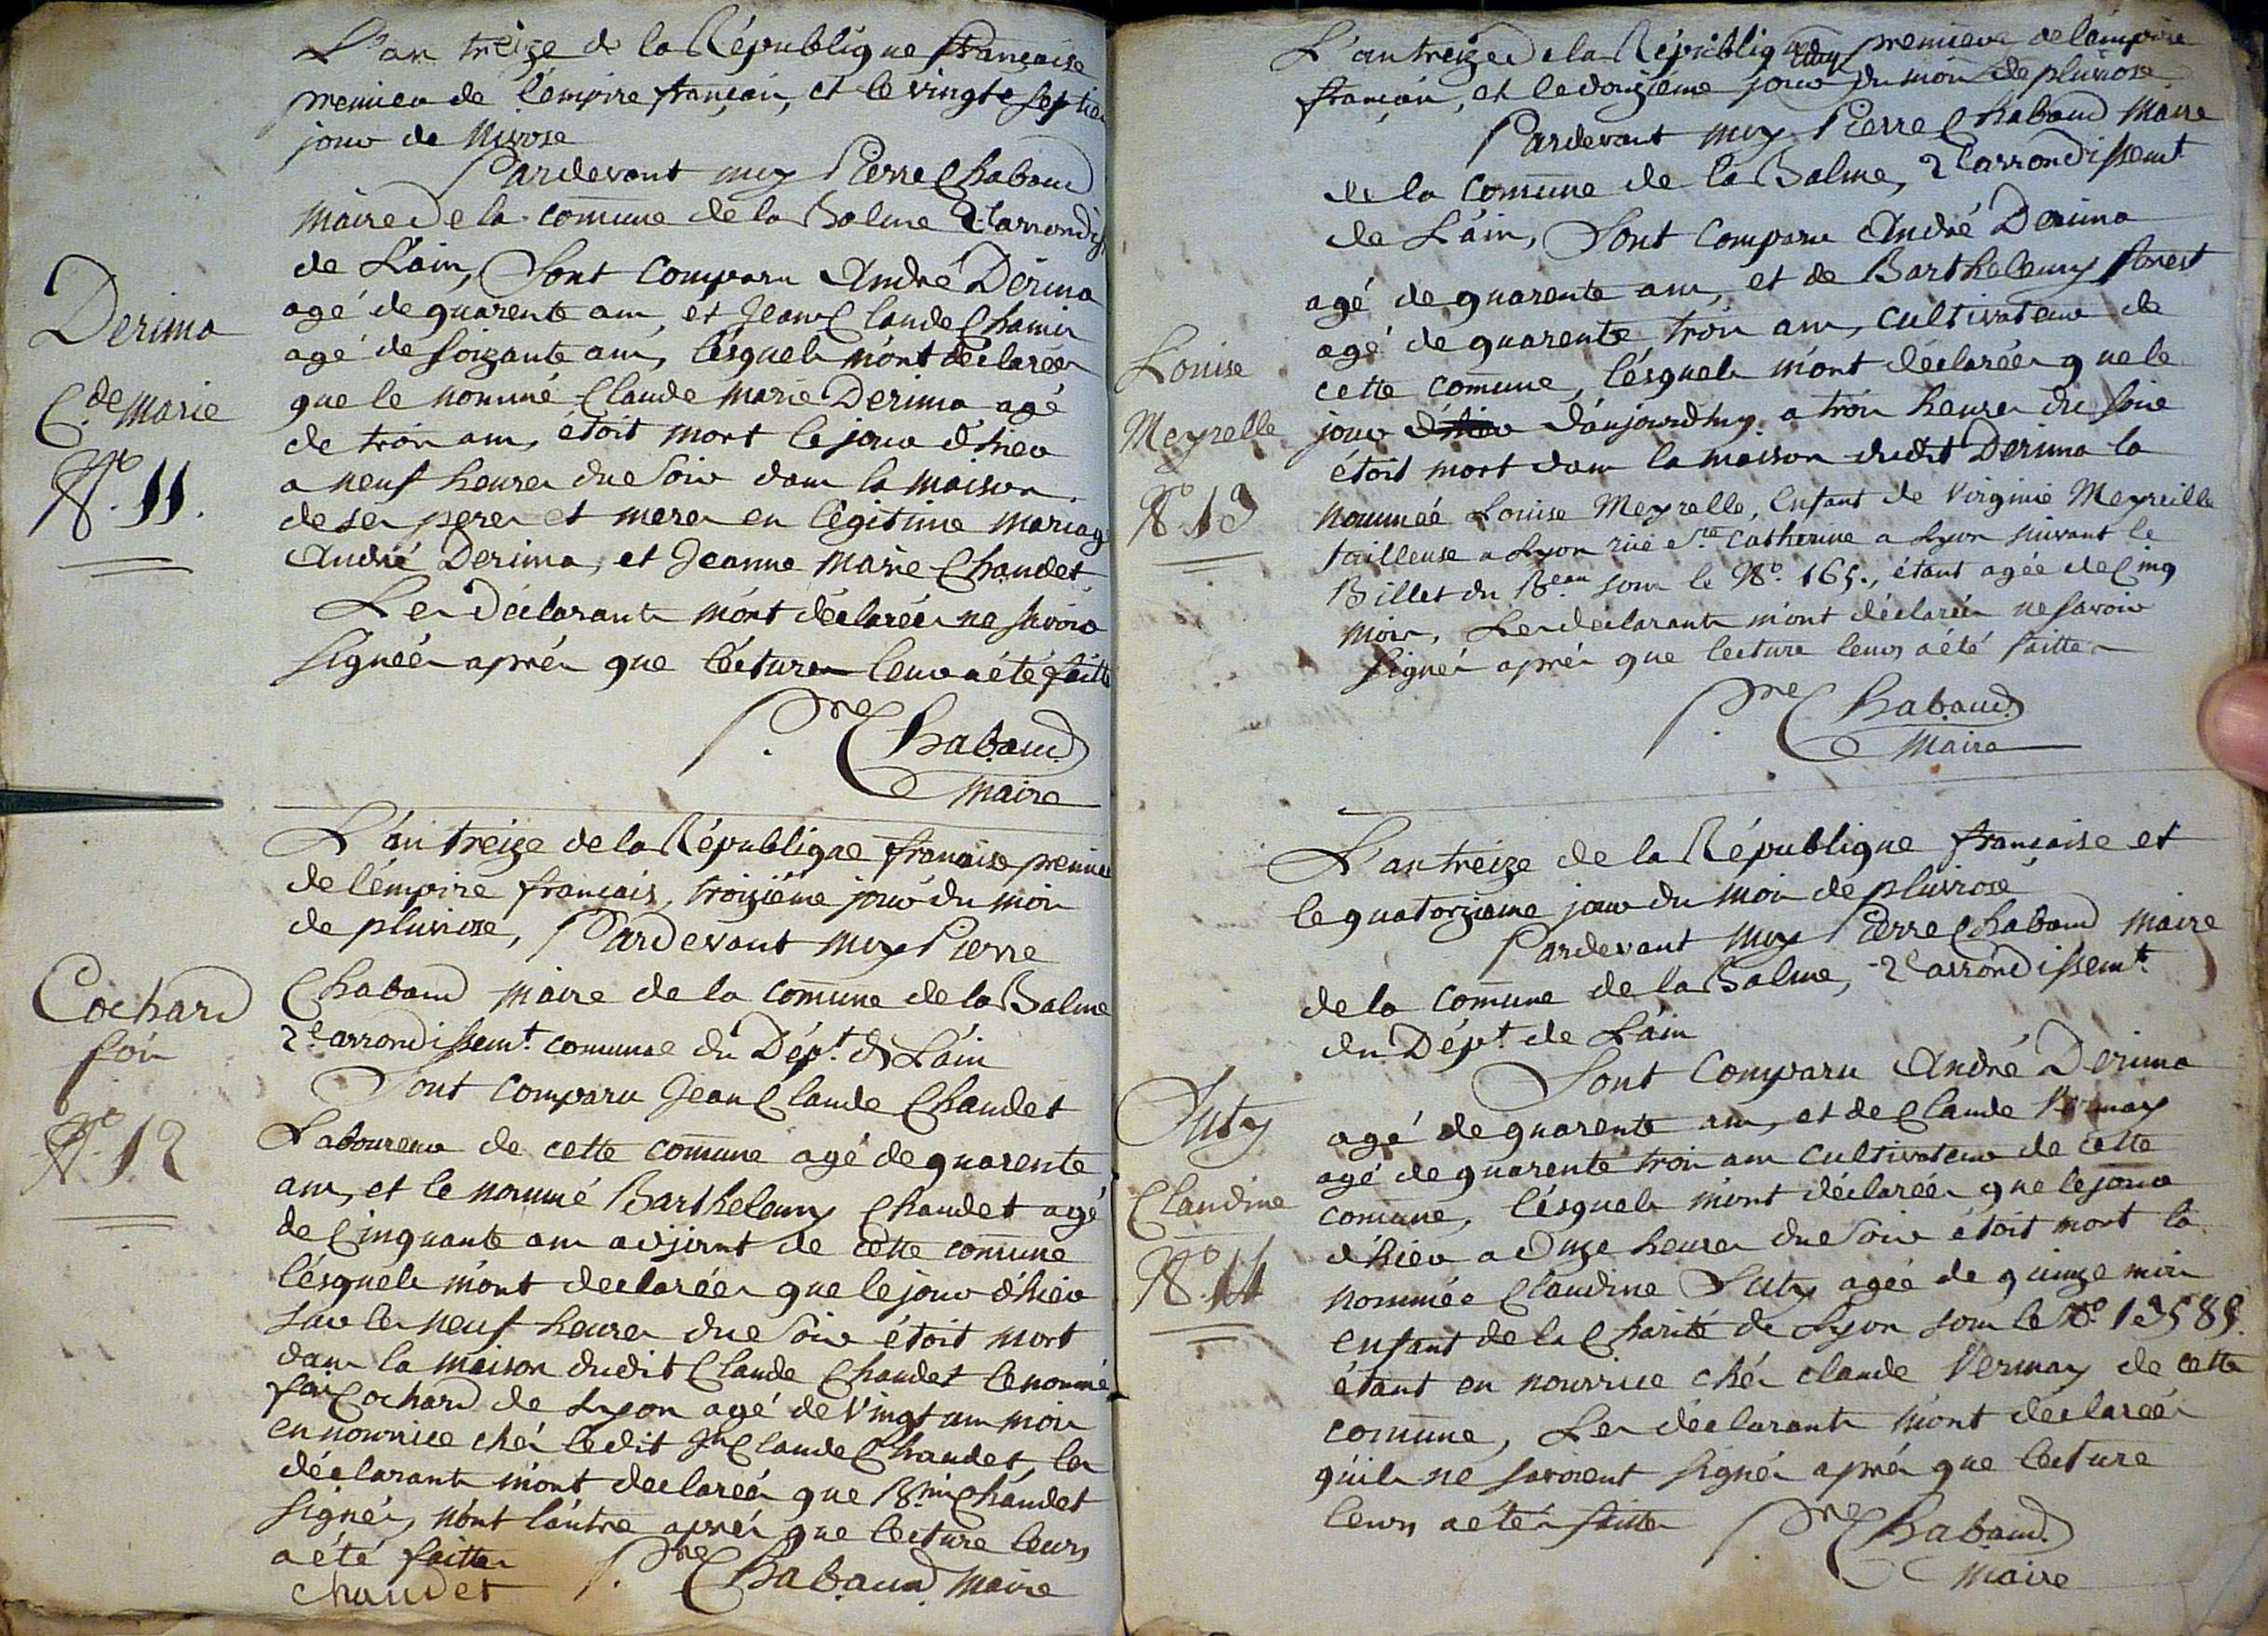 L'an treize de la République française
premier de l'émpire françain, et le vingte septie
jour de Nivose
Pardevant moy Pierre Chaboud
Maire de la comune de la Balme 2e arrondis
de L'ain, Sont comparu André Derima
agé de quarente ans, et Jean Claude Chamin
agé de soizante ans, lésquels m'ont déclareés
que le nommé Claude Marie Derima agé
de trois ans, étoit mort le jour d'hier
a neuf heures du Soir dans la maison
de ses peres et meres en légitime mariage
André Derima, et Jeanne Marie Chaudet
Les Déclarants m'ont déclareés ne savoir
signéés aprés que lécture leur a été faitte
Derima
C.de Marie
N.o 11.
P.re Chabaud
Maire
L'an treize de la République francaise premier
de l'émpire français, troiziéme jour du mois
de pluviose, Pardevant moy Pierre
Chabaud Maire de la comune de la Balme
2e arrondissem.t comunal du Dép.t de L'ain
Sont comparu Jean Claude Chaudet
Laboureur de cette comune agé de quarente
ans, et le nommé Barthelemy Chaudet agé
de Cinquante ans adjoint de cétte comune
lésquels m'ont declareés que le jour d'hier
sur les neuf heures du Soir étoit mort
dans la maison dudit Claude Chaudet le nommé
foi Cochard de Lyon agé de vingt un mois
en nourrice chés ledit Jn Claude Chaudet, les
déclarants m'ont declareés que B.mi Chaudet
signés, n'ont l'autre aprés que lecture leurs
a été faittes
Chaudet P.re Chabaud Maire
Cochard
foi
N.o 12
L'an treize de la République premier de l'émpire
françain, et le douziéme jour du mois de pluviose
Pardevant moy Pierre Chabaud Maire
de la comune de la Balme, 2e arrondissemt
de L'ain, Sont comparu André Derima
agé de quarente ans, et de Barthelemy forest
agé de quarente trois ans, cultivateur de
cette comune, lésquels m'ont déclareés que le
jour d'hier d'aujourdhuy a trois heures du soir
étoit mort dans la maison dudit Derima la
nommée Louise Meyrelle, Enfant de Virginie Meyreille
tailleuse a Lyon rüe S.te Catherine a Lyon suivant le
Billet du B.eau sous le N.o 165., étant agée de Cinq
mois, Les déclarants m'ont déclareés ne savoir
signés aprés que lecture leurs a été faittes
Louise
Meyrelle
N.o 13
P.re Chabaud
Maire
L'an treize de la République française et
le quatorziéme jour du mois de pluviose
Pardevant moy Pierre Chabaud Maire
de la comune de la Balme, 2e arrondissemt.
du Dépt de L'ain
Sont comparu André Derima
agé de quarente ans, et de Claude Vermay
agé de quarente trois ans cultivateur de cétte
comune, lésquels m'ont déclareés que le jour
d'hier a onze heures du Soir étoit mort la
nommée Claudine Suty agée de quinze mois
enfant de la Charité de Lyon sous le N.o
étant en nourrice chés claude Vermay de cette
comune, Les déclarants m'ont declareés
qu'ils ne savoient signés aprés que lecture
leurs a étés faittes
Suty
Claudine
N.o 14
P.re Chabaud
Maire